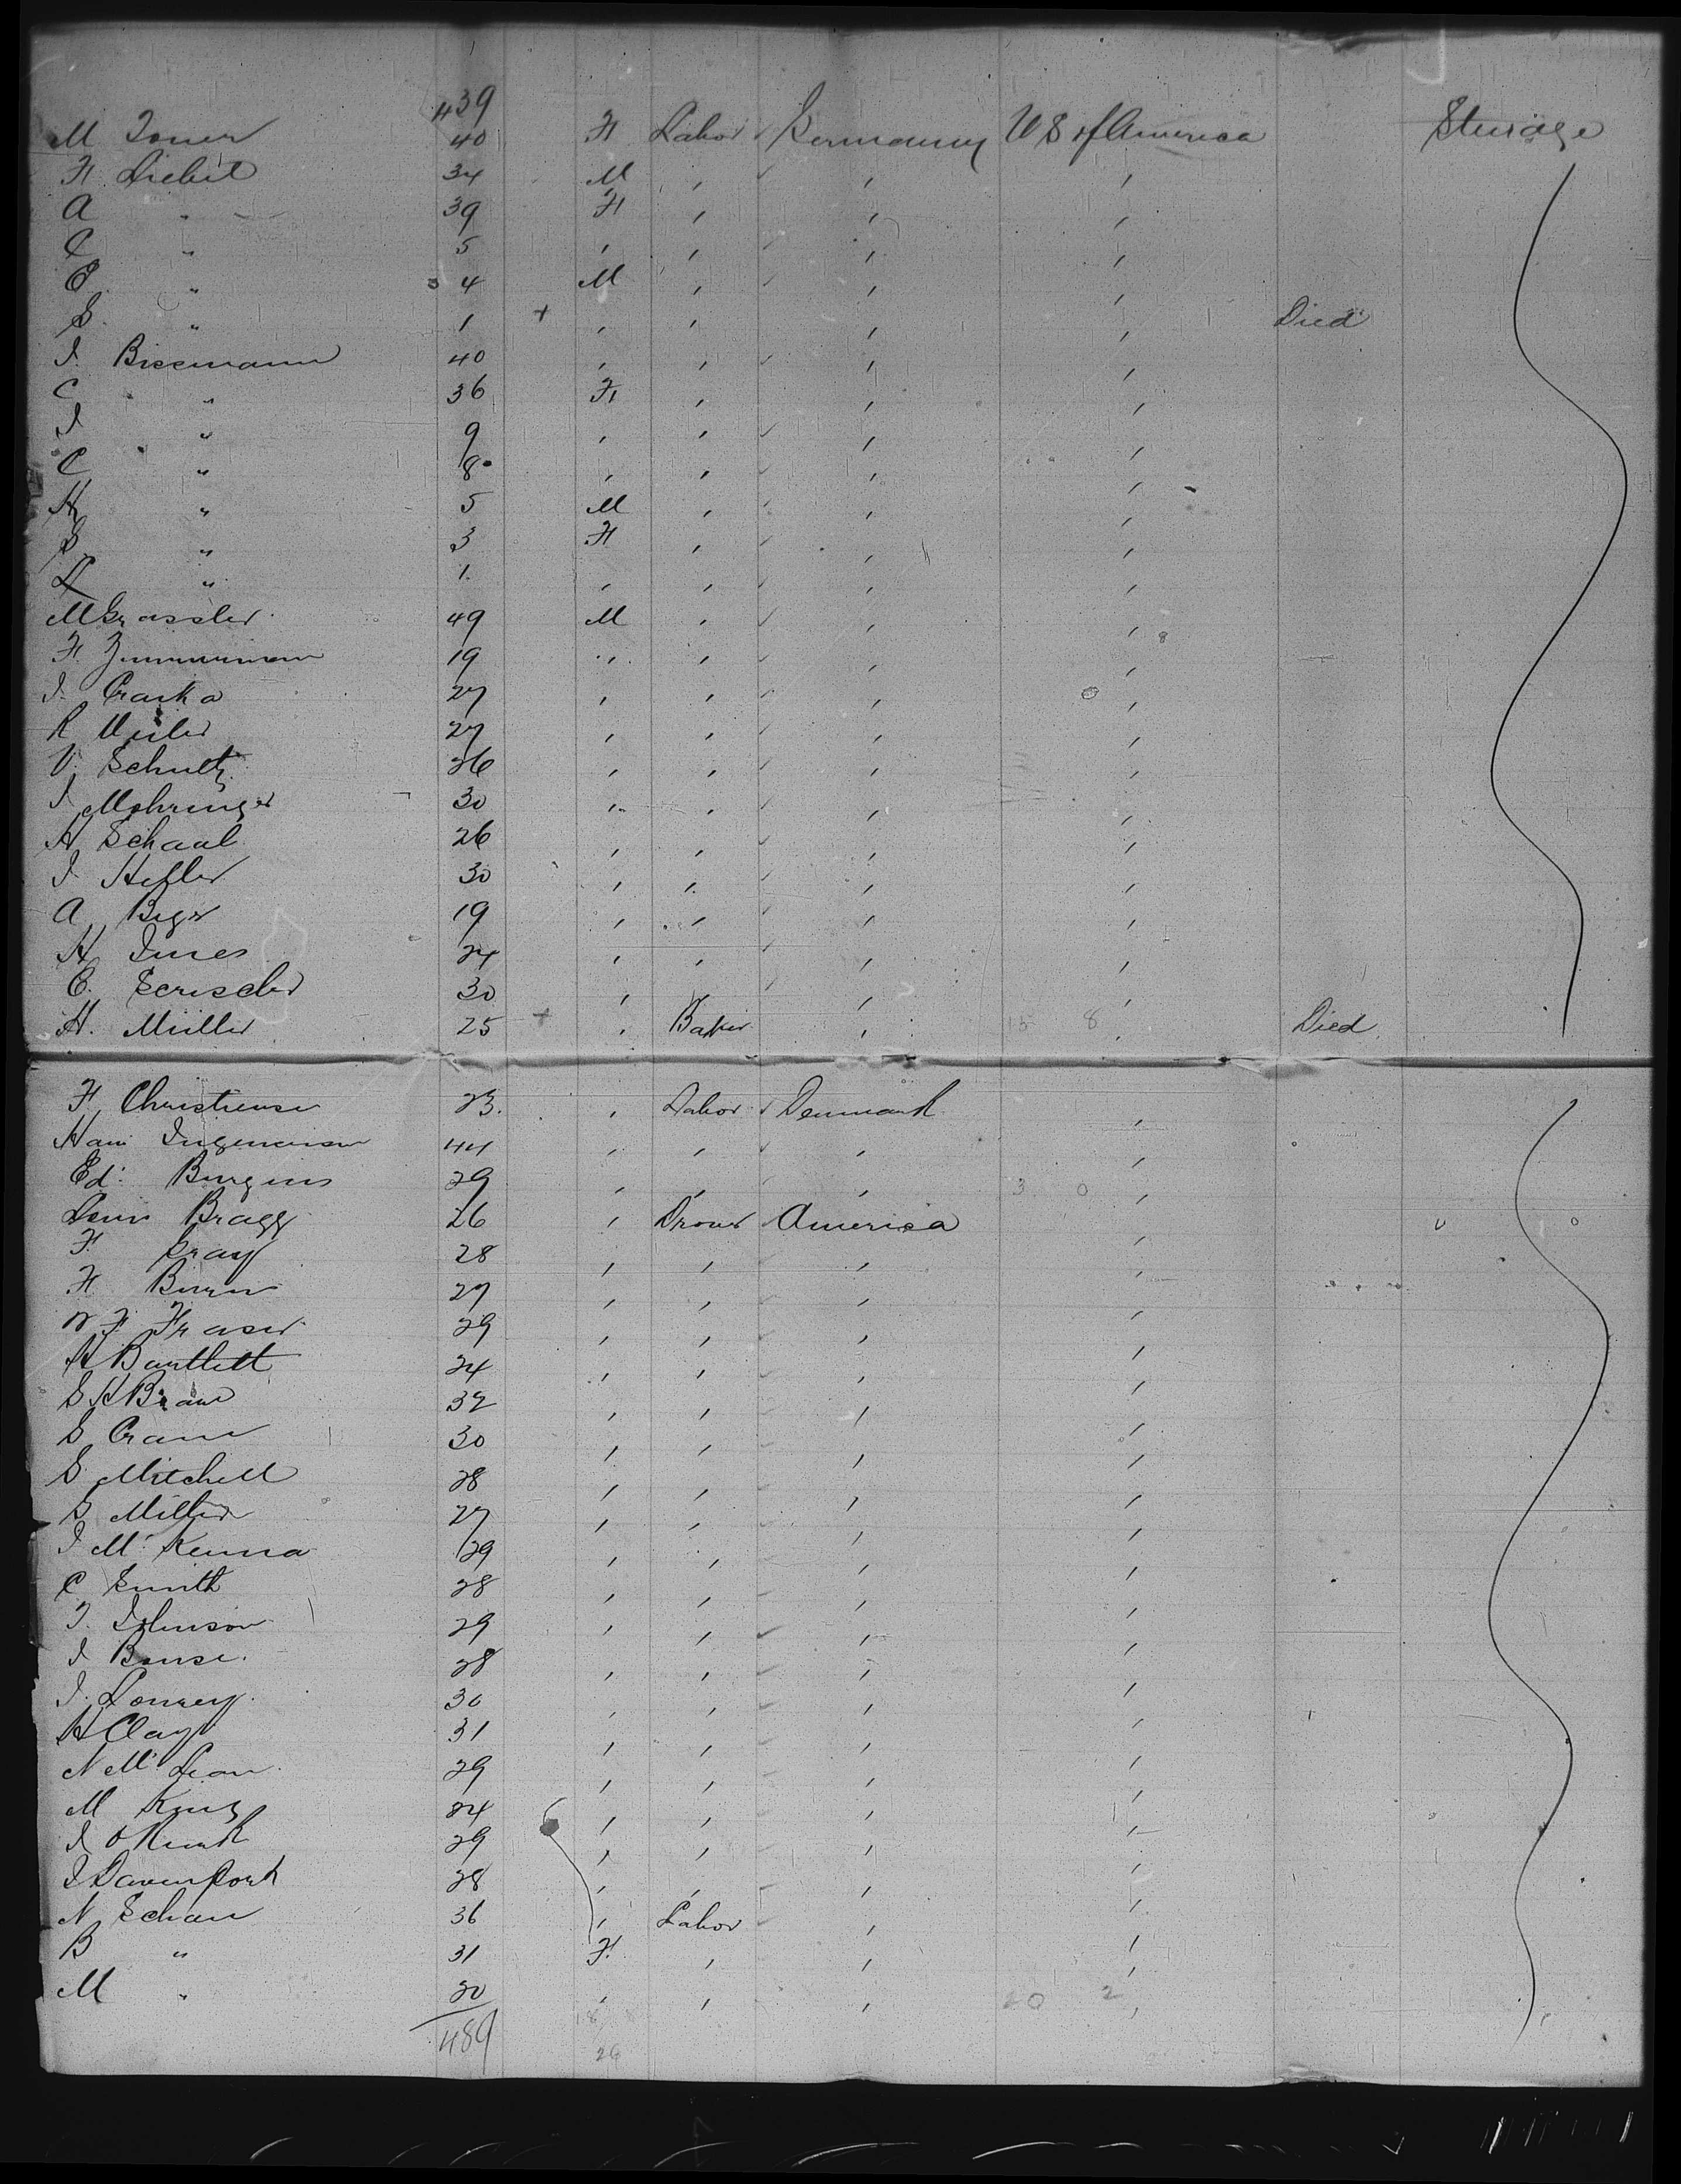 439
M Toner 40 F Labor Germany U S of America Steerage
F Liebit 34 M , , ,
A " 39 F , , ,
C " 5 , , , ,
E " 4 M , , ,
S " 1 + , , , , Died
J. Bissmann 40 , , , ,
C " 36 F , , ,
J " 9 , , , ,
C " 8 , , , ,
H " 5 M , , ,
S " 3 F , , ,
L " 1 , , , ,
M Grassler 49 M , , ,
F. Zimmerman 19 , , , ,
J. Craska 27 , , , ,
R 27 , , , ,
V. Schultz 26 , , , ,
J Mohringer 30 , , , ,
H Schaal 26 , , , ,
J Hefler 30 , , , ,
A Beger 19 , , , ,
H Innes 24 , , , ,
C. 30 , , , ,
H. Müller 25 + , Baker , 15 8 , Died
F Christiensen 23 , Labor Denmark ,
Hans Ingemanson 44 , , , ,
Ed. Burgins 29 , , , 3 0 ,
Louis Bragg 26 , Drover America ,
F. Gray 28 , , , ,
F Burns 27 , , , ,
F Fraser 29 , , , ,
H Bartlett 24 , , , ,
S H Braw 32 , , , ,
S Crann 30 , , , ,
S. Mitchell 28 , , , ,
S Miller 27 , , , ,
J McKenna 29 , , , ,
C Smith 28 , , , ,
T. Johnson 29 , , , ,
J Bause. 28 , , , ,
J. Lowery 30 , , , ,
H Clay 31 , , , ,
N McLean 29 , , , ,
M King 24 , , , ,
J 29 , , , ,
J Davenport 28 , , , ,
N Schan 36 , Labor , ,
B " 31 F. , , ,
M " 20 , , , 20 2 ,
489 18 8
26